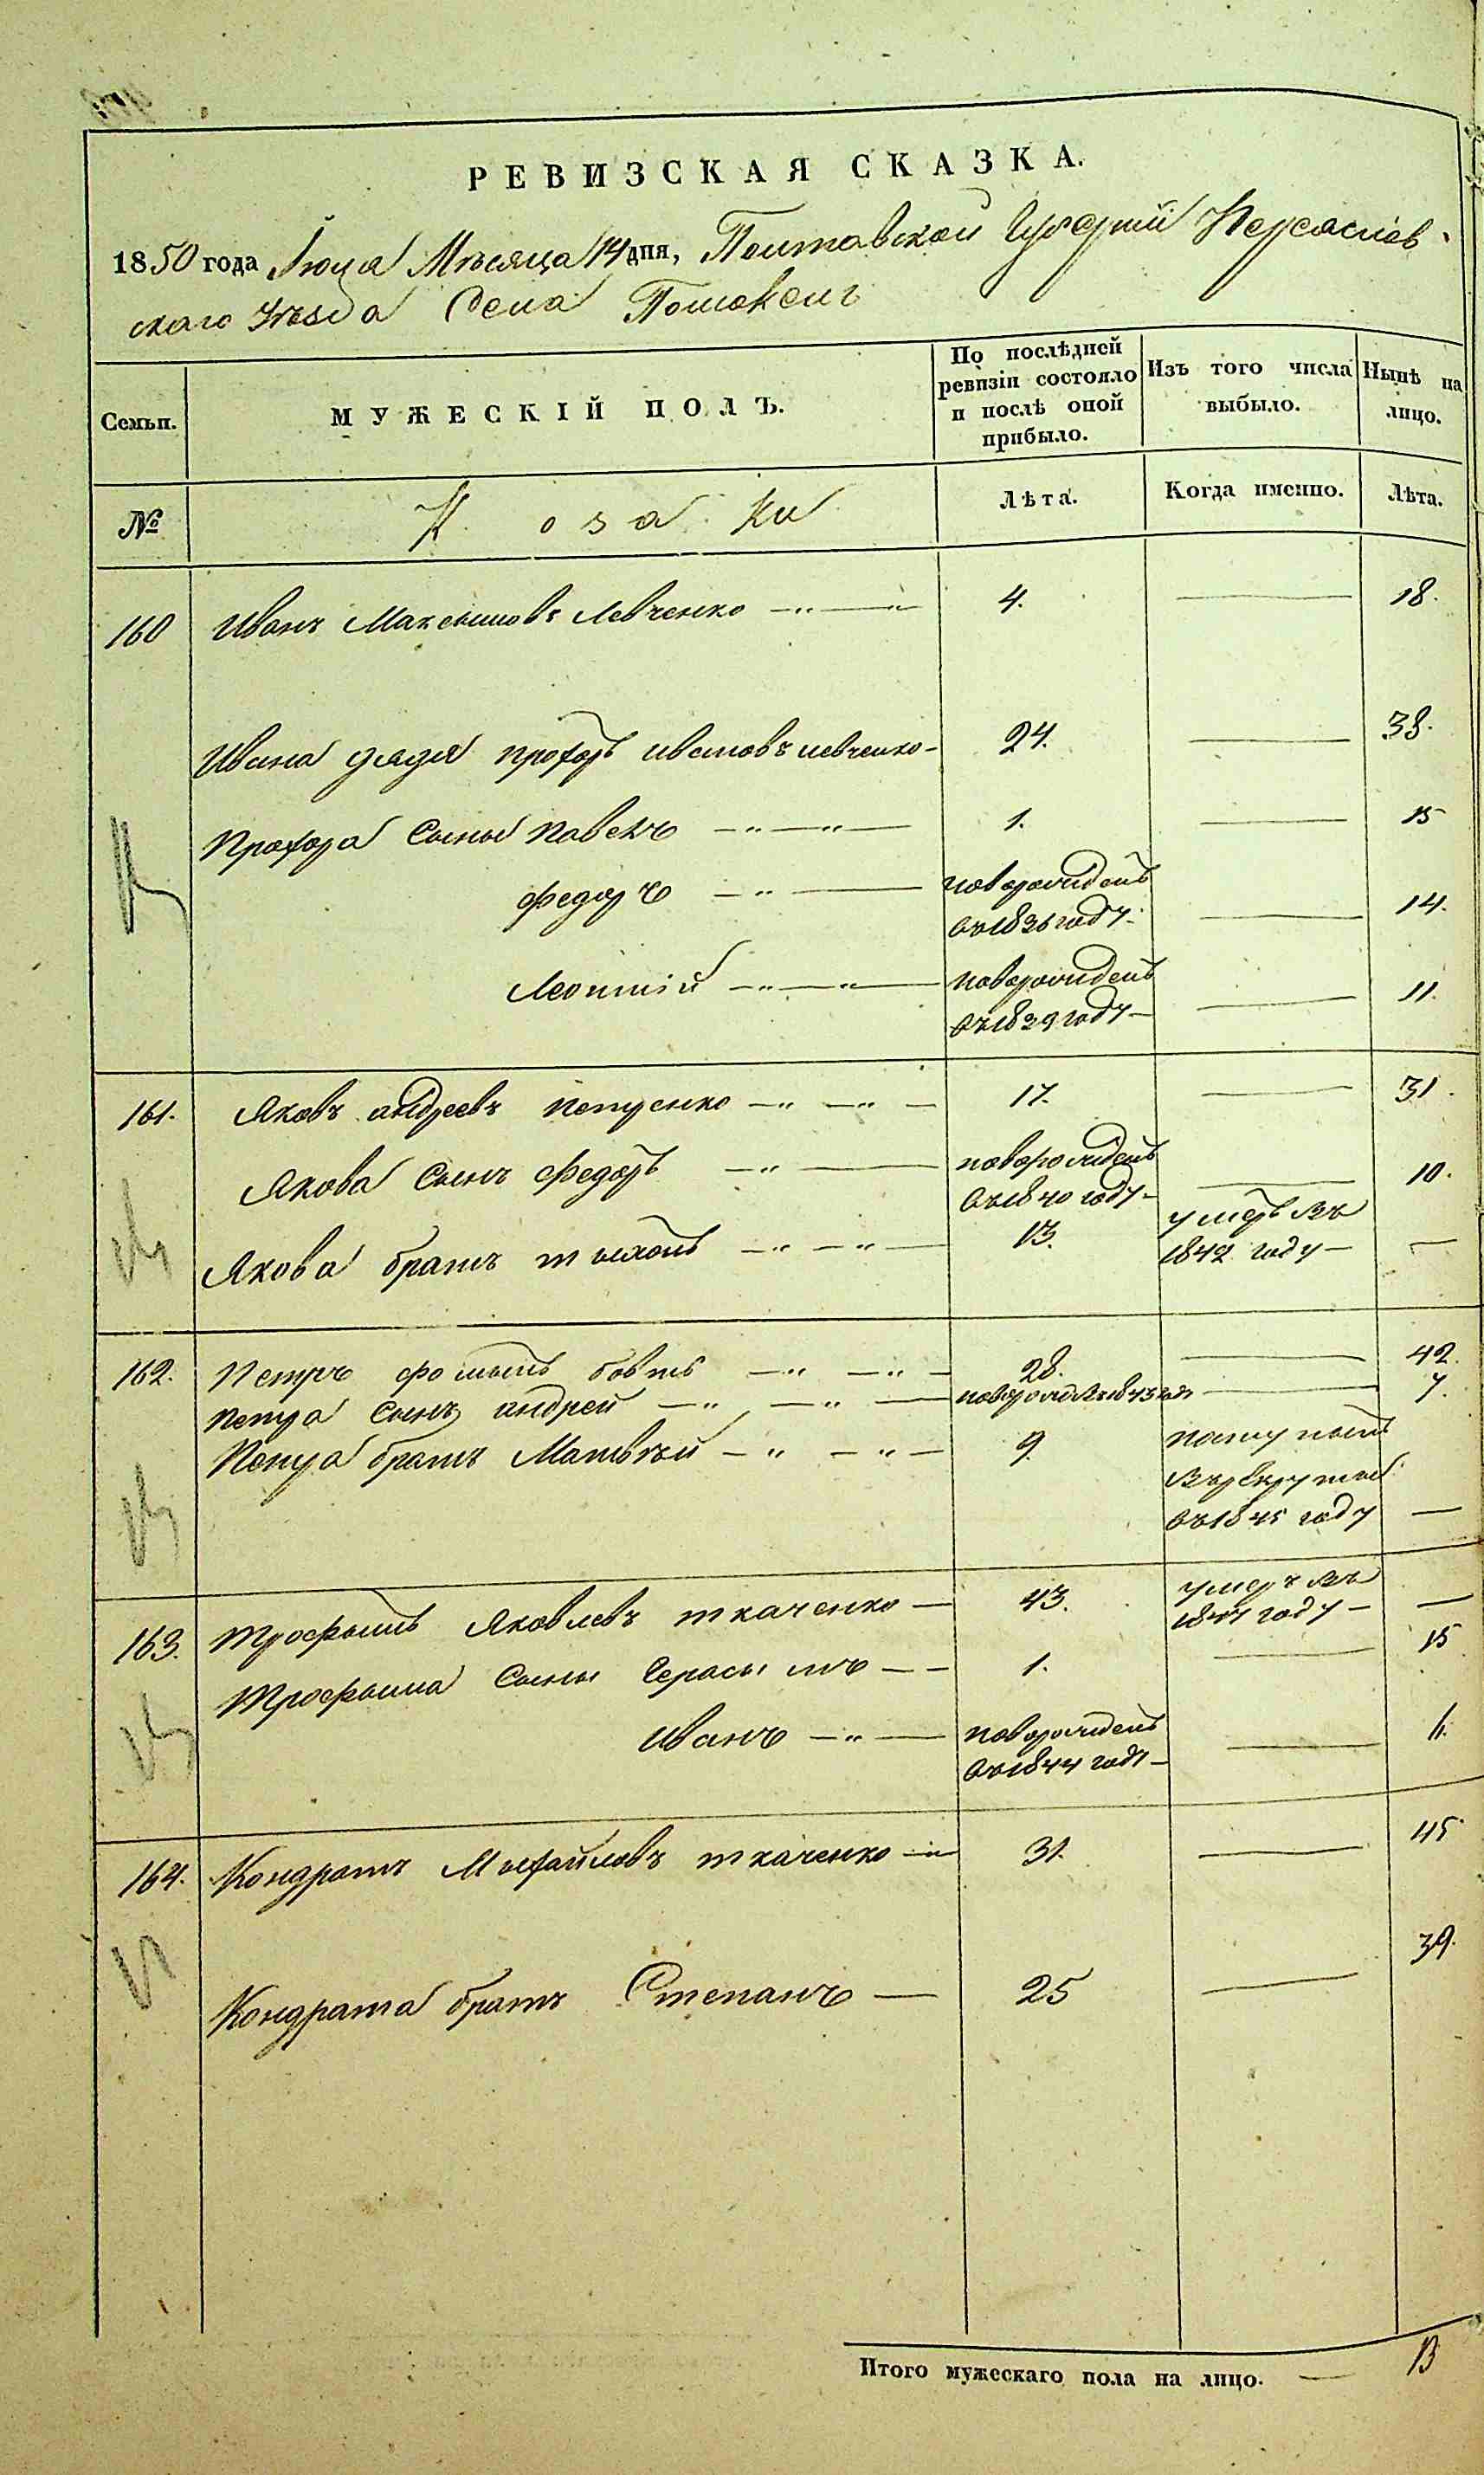 РЕВИЗСКАЯ СКАЗКА.
1850 года Іюля Мѣсяца 14 дня, Полтавской Губерніи Переяслов-
скаго Уѣзда Села Помоклей
Семьи.
МУЖЕСКІЙ ПОЛЪ.
По послѣдней ревизіи состояло и послѣ оной прибыло.
Изъ того числа выбыло.
Нынѣ на лицо.
№
Козаки
Лѣта.
Когда именно.
Лѣта.
160 Иванъ Максимовъ Левченко 4. 18.
Ивана дядя Прохоръ Ивановъ Левченко 24. 38.
Прохора сыны Павелъ 1. 15
Федоръ новорожденъ 14.
въ 1836 году
Леонтій новорожденъ 11.
въ 1839 году
161. Яковъ Андреевъ 17. 31.
Якова сынъ Федоръ новорожденъ 10.
въ 1840 году
Якова братъ Тихонъ 13. умеръ въ
1842 году
162. Петръ Фоминъ 28. 42.
Петра сынъ Андрей новорож. въ 1843 год 7.
Петра братъ Матвѣй 9. поступилъ
въ рекруты
въ 1845 году
163. Трофимъ Яковлевъ Ткаченко 43. умеръ въ
1847 году
Трофима сыны Герасимъ 1. 15
Иванъ новорожденъ 6.
въ 1844 году
164. Кондратъ Михайловъ Ткаченко 31. 45
Кондрата братъ Степанъ 25 39.
Итого мужескаго пола на лицо. 13